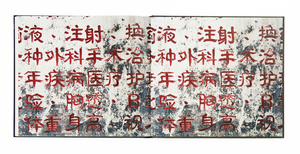 液 注射 换 液 注射 换
种、外科手术 治 种、外科手术 治
年 疾病医疗 护 年 疾病医疗 护
险 胸透 B 险 胸透 B
体重 身高 视 体重 身高 视